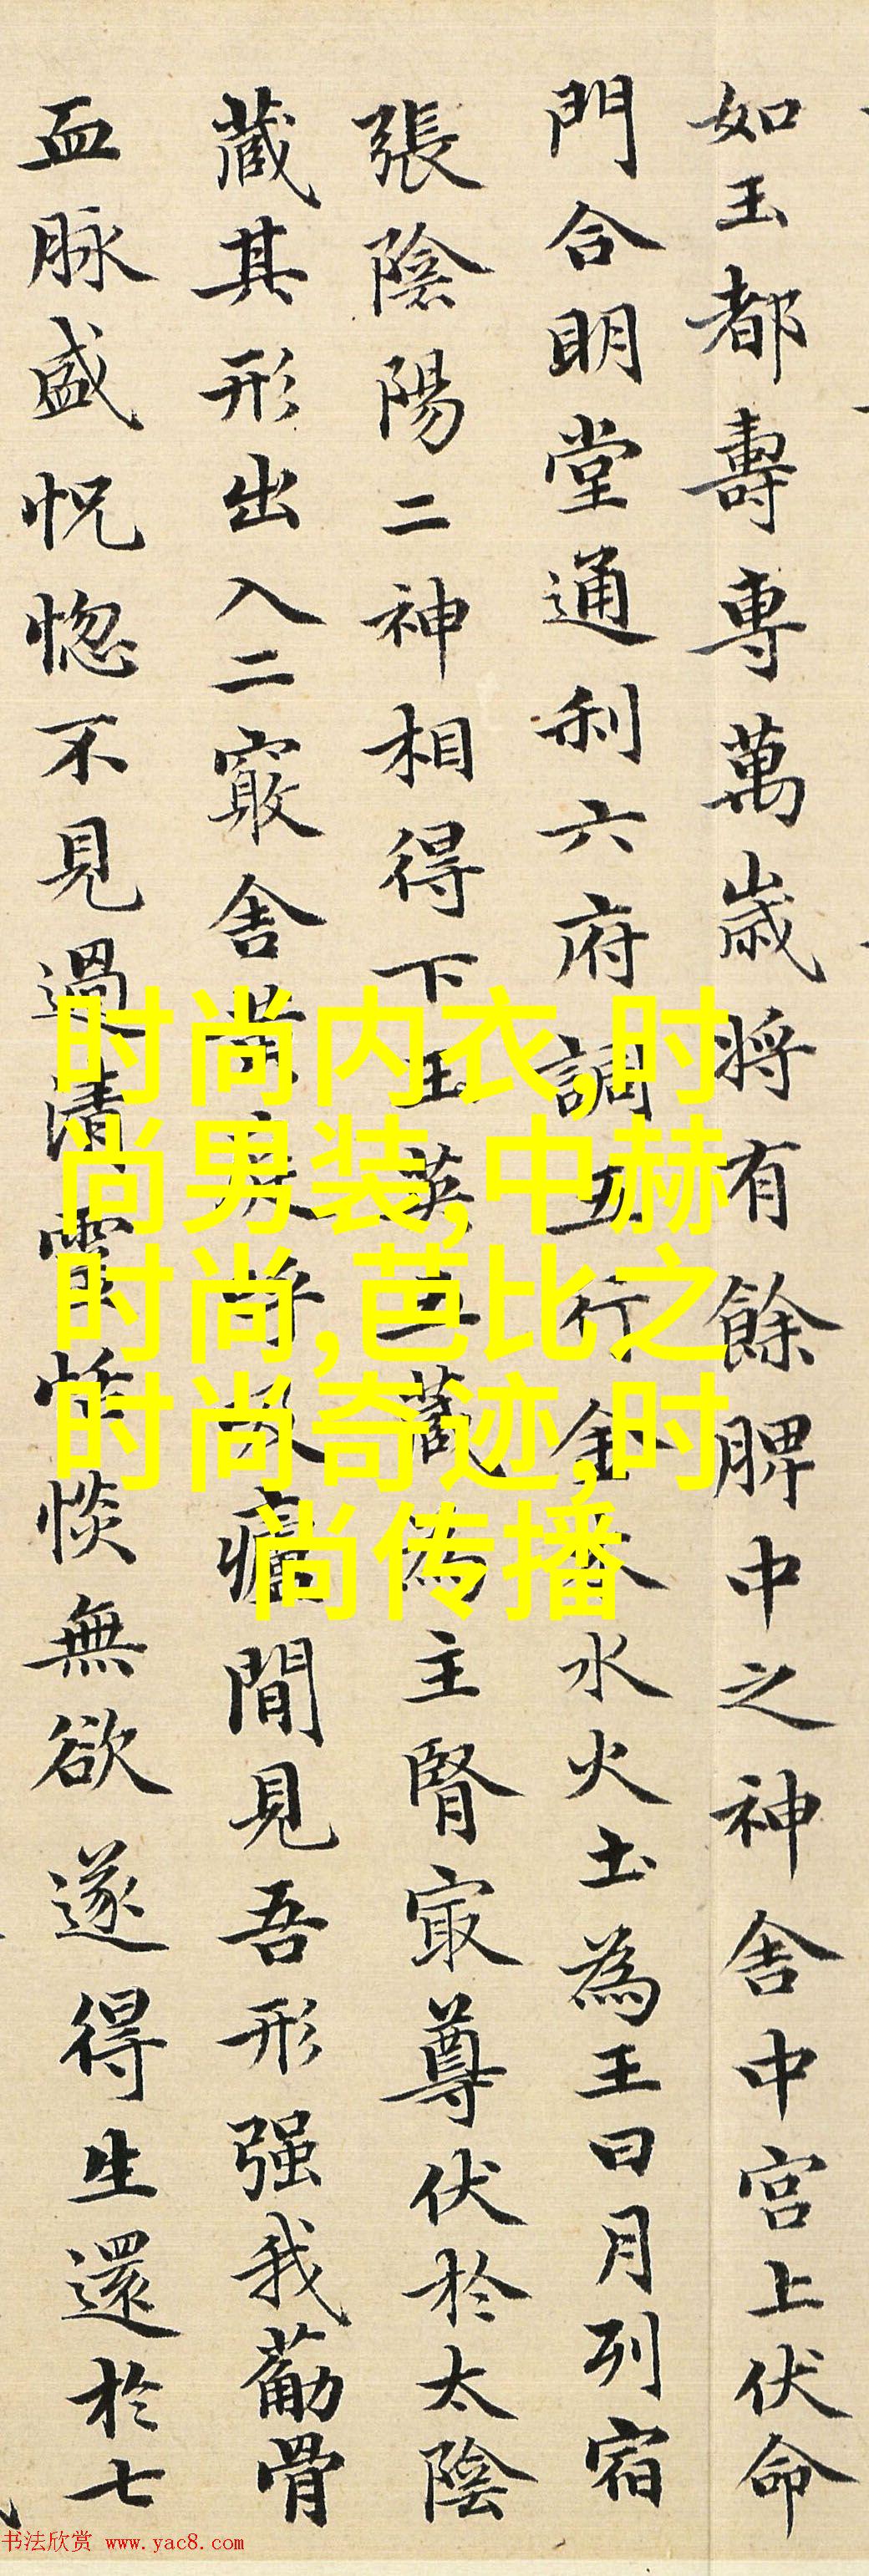 如玉都壽專萬歲將有餘脾中之神舍中宮上伏命
門合明堂通利六府調五行金木水火土為王日月列宿
張陰陽二神相得下玉英五藏為主腎㝡尊伏於太陰
藏其形出入二竅舍黃庭呼吸廬間見吾形强我荕骨
血脉盛怳惚不見過清靈恬惔無欲遂得生還於七
时尚内衣,时
尚男装,中赫
时尚,芭比之
时尚奇迹,时
尚传播
书法欣赏 www.yac8.com